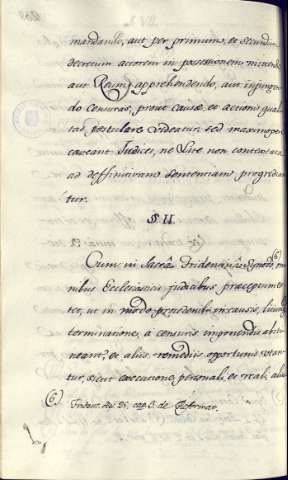 mandando, aut per primum, et secundum
decretum actorem in possessionem mittendo
aut Reum apprehendendo, aut infligen
do censuras, prout causæ, et actionis quali
tas postulare videatur, sed maxime
caveant Judices, ne Lite non contestata
ad deffinitivam sententiam progredian
tur.
§ II.
Cum in sacra Tridentina Synodo (6)
nibus Ecclesiasticis judicibus præcipiatur
ut in modo procedendi in causis,
terminatione, a censuris abs
neant, et aliis remediis opportunis utan
tur, sicut executione personali, et reali,
(6) Trident. 25. cap. 3. de